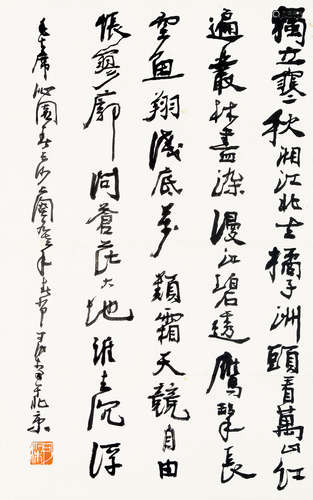 獨立寒秋湘江北去橘子洲頭看萬山紅
遍叢林盡染漫江碧透鷹擊長
空魚翔淺底萬類霜天競自由
悵寥廓問蒼茫大地誰主沉浮
毛主席沁園春長沙一闋 年春節 於北京